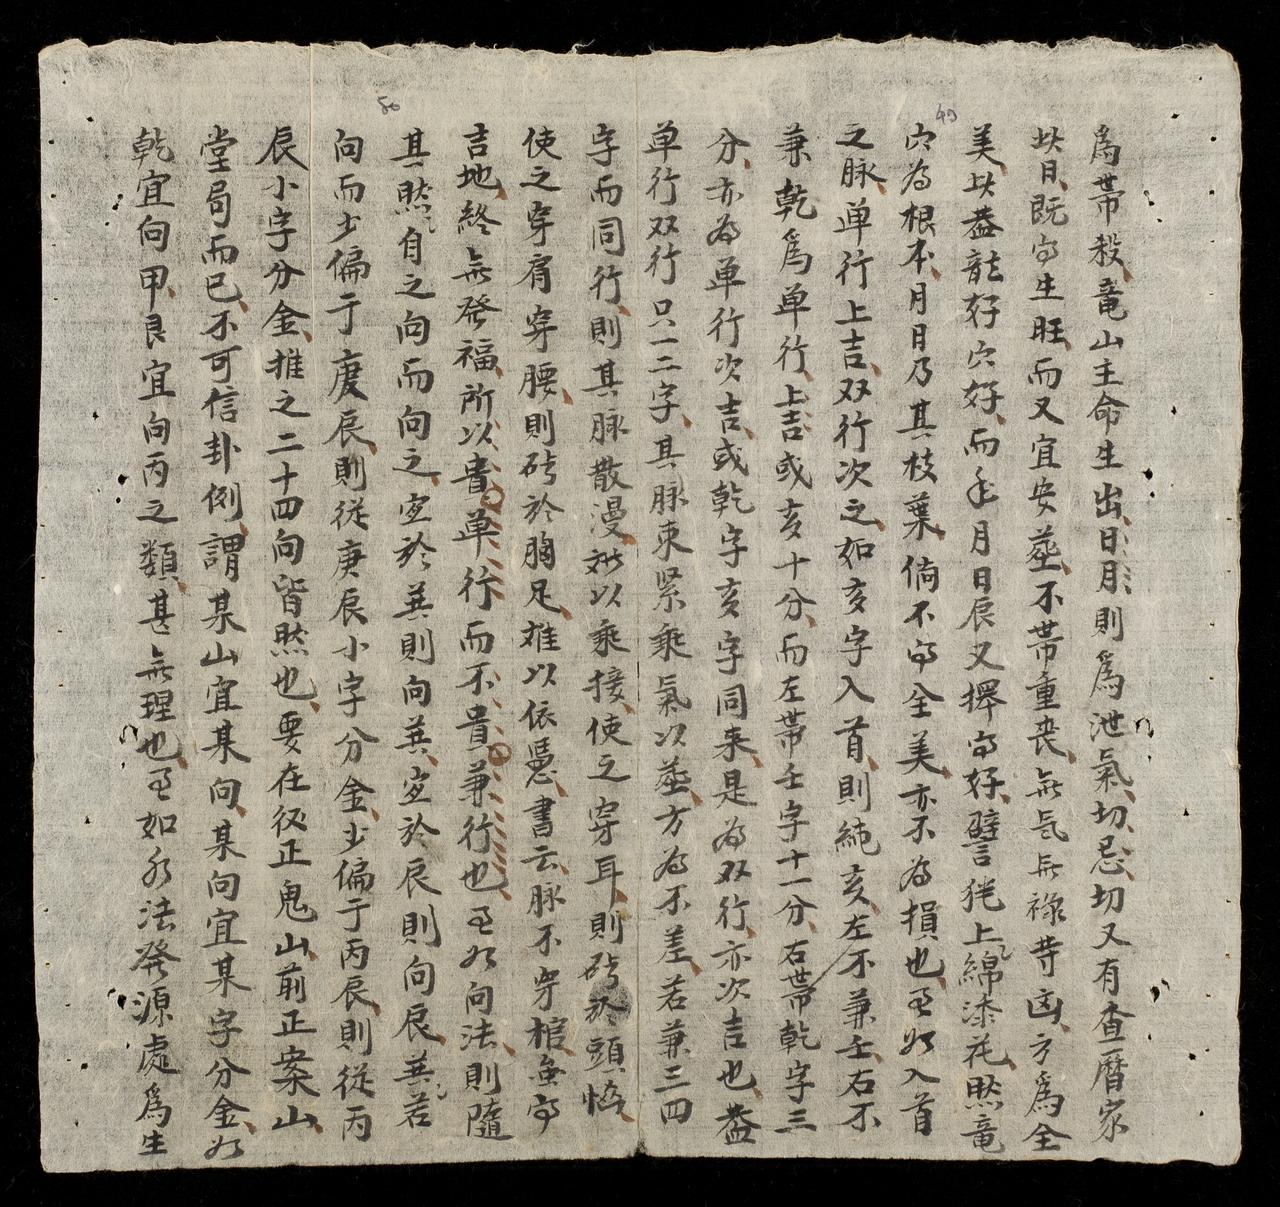 49
為帶殺竜山主命生出日月則為泄氣切忌切又有查曆家
此日既向生旺而又宜安葬不帶重喪無氣無祿等凶方為全
美此盖龍好穴好而年月日辰又擇向好譬犹上綿漆花然竜
穴為根本月日乃其枝葉倘不向全美亦不為損也至如入首
之脉单行上吉双行次之如亥字入首則純亥左不兼壬右不
兼乾為単行上吉或亥十分而左帶壬字十一分右帶乾字三
分亦為単行次吉或乾字亥字同来是為双行亦次吉也盖
单行双行只一二字其脉束紧乘氣以葬方為不差若兼三四
字而同行則其脉散漫难以乘接使之穿耳則砖於頭
使之穿肩穿腰則砖於胸足难以依憑書云脉不穿棺無向
吉地終無發福所以貴单行而不貴兼行也至如向法則隨
其自然之向而向之宜於巽則向巽宜於辰則向辰巽若
向而少偏于庚辰則従庚辰小字分金少偏于丙辰則従丙
辰小字分金推之二十四向皆然也要在後正鬼山前正案山
堂局而已不可信卦例謂某山宜某向某向宜某字分金如
乾宜向甲艮宜向丙之類甚無理也至如水法發源處為生
50